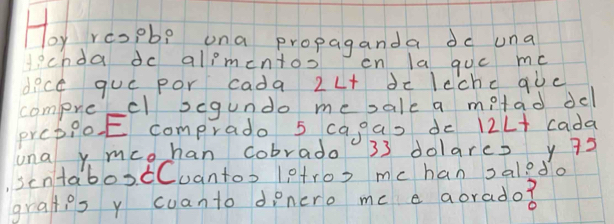 Hoy recibi una propaganda de una
tienda de alimentos en la que me
dice que por cada 2Lt de leche que
compre el segundo me sale a mitad del
precio. E comprado 5 cajas de 12Lt cada
una y me han cobrado 33 dolares y 75
sentabos. ¿Cuantos litros me han salido
gratis y cuanto dinero me e aorado?